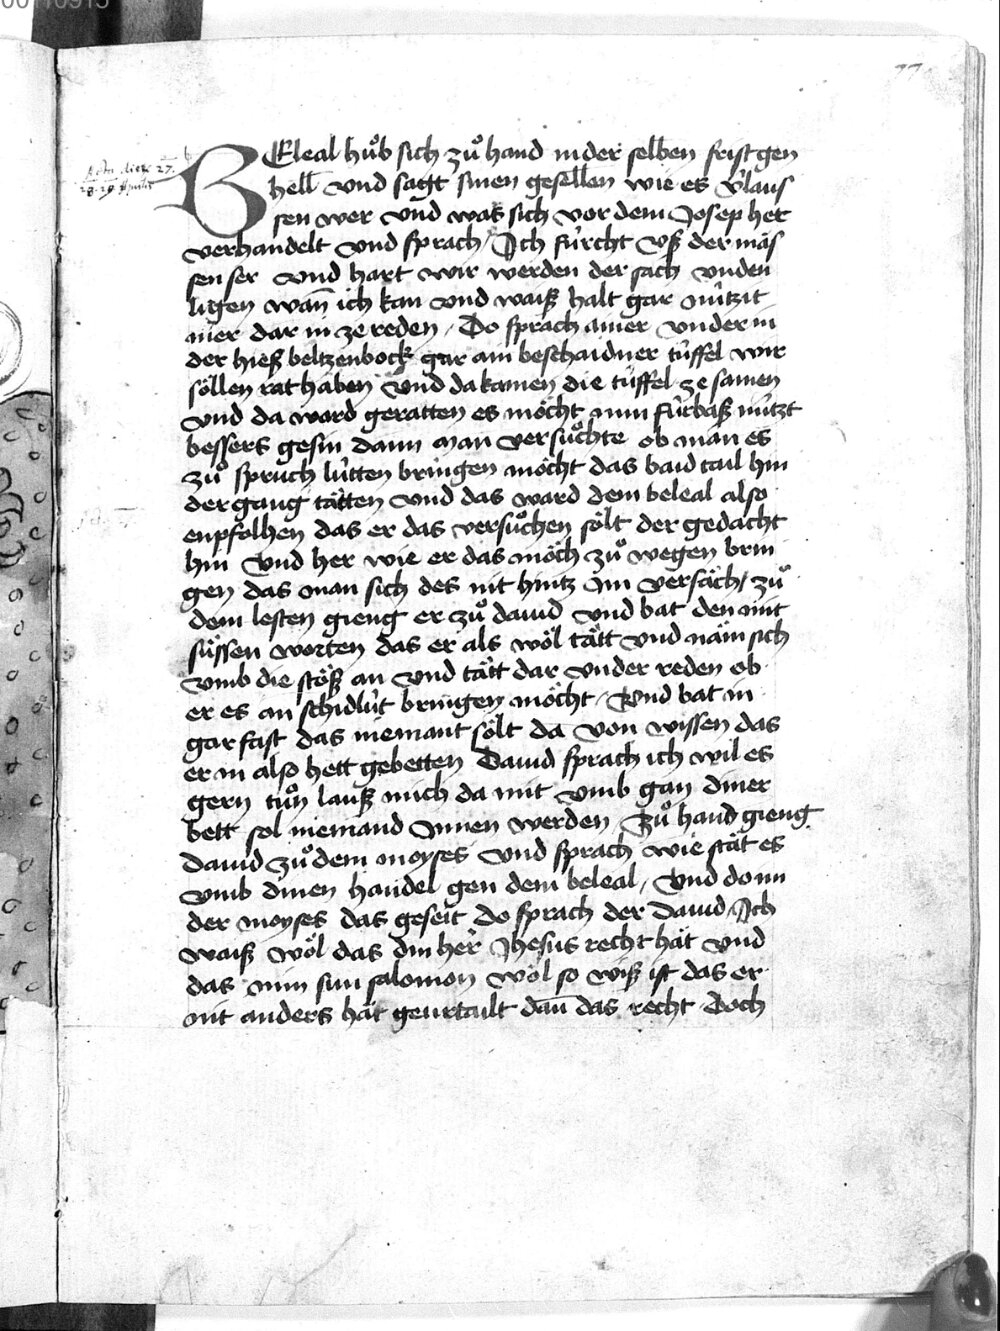 00110915
77
Actu diex 27.
28. 29 Aprilis
BEleal hůb sich zů hand in der selben frist gen
hell vnd sagt sinen gesellen wie es v̂laus
sen wer vnd was sich vor dem Josep het
verhandelt vnd sprach / Ich fúrcht vß der mäs
sen ser vnd hart wir werden der sach vnden
ligen wañ ich kan vnd waiß halt gar nútzit
mer dar in ze reden / Do sprach ainer vnder in
der hieß beltzenbock gar ain beschaidner túffel wir
söllen rat haben vnd da kamen die túffel ze samen
vnd da ward geratten es möcht nun fúrbaß nútzt
bessers gesin dann man versůchte ob man es
zů spruch lútten bringen möcht das baid tail hin
der gang tätten vnd das ward dem beleal also
enpfolhen das er das versůchen sölt der gedacht
hin vnd her wie er das möch zů wegen brin
gen das man sich des nit hintz im versäch / zů
dem lesten gieng er zů dauid vnd bat den mit
süssen worten das er als wol tätt vnd näm sich
vmb die stöß an vnd tätt dar vnder reden ob
er es an schidlút bringen möcht / Vnd bat in
gar fast das niemant sölt da von wissen das
er in also hett gebetten Dauid sprach ich wil es
gern tůn lauß mich da mit vmb gan diner
bett sol niemand Innen werden / Zů hand gieng
dauid zů dem moyses vnd sprach wie stät es
vmb dinen handel gen dem beleal / Vnd do im
der moyses das geseit do sprach der Dauid / Ich
waiß wol das din her Jhesus recht hät vnd
das min sun salomon wol so wiß ist das er
nit anders hät geurtailt dañ das recht Doch